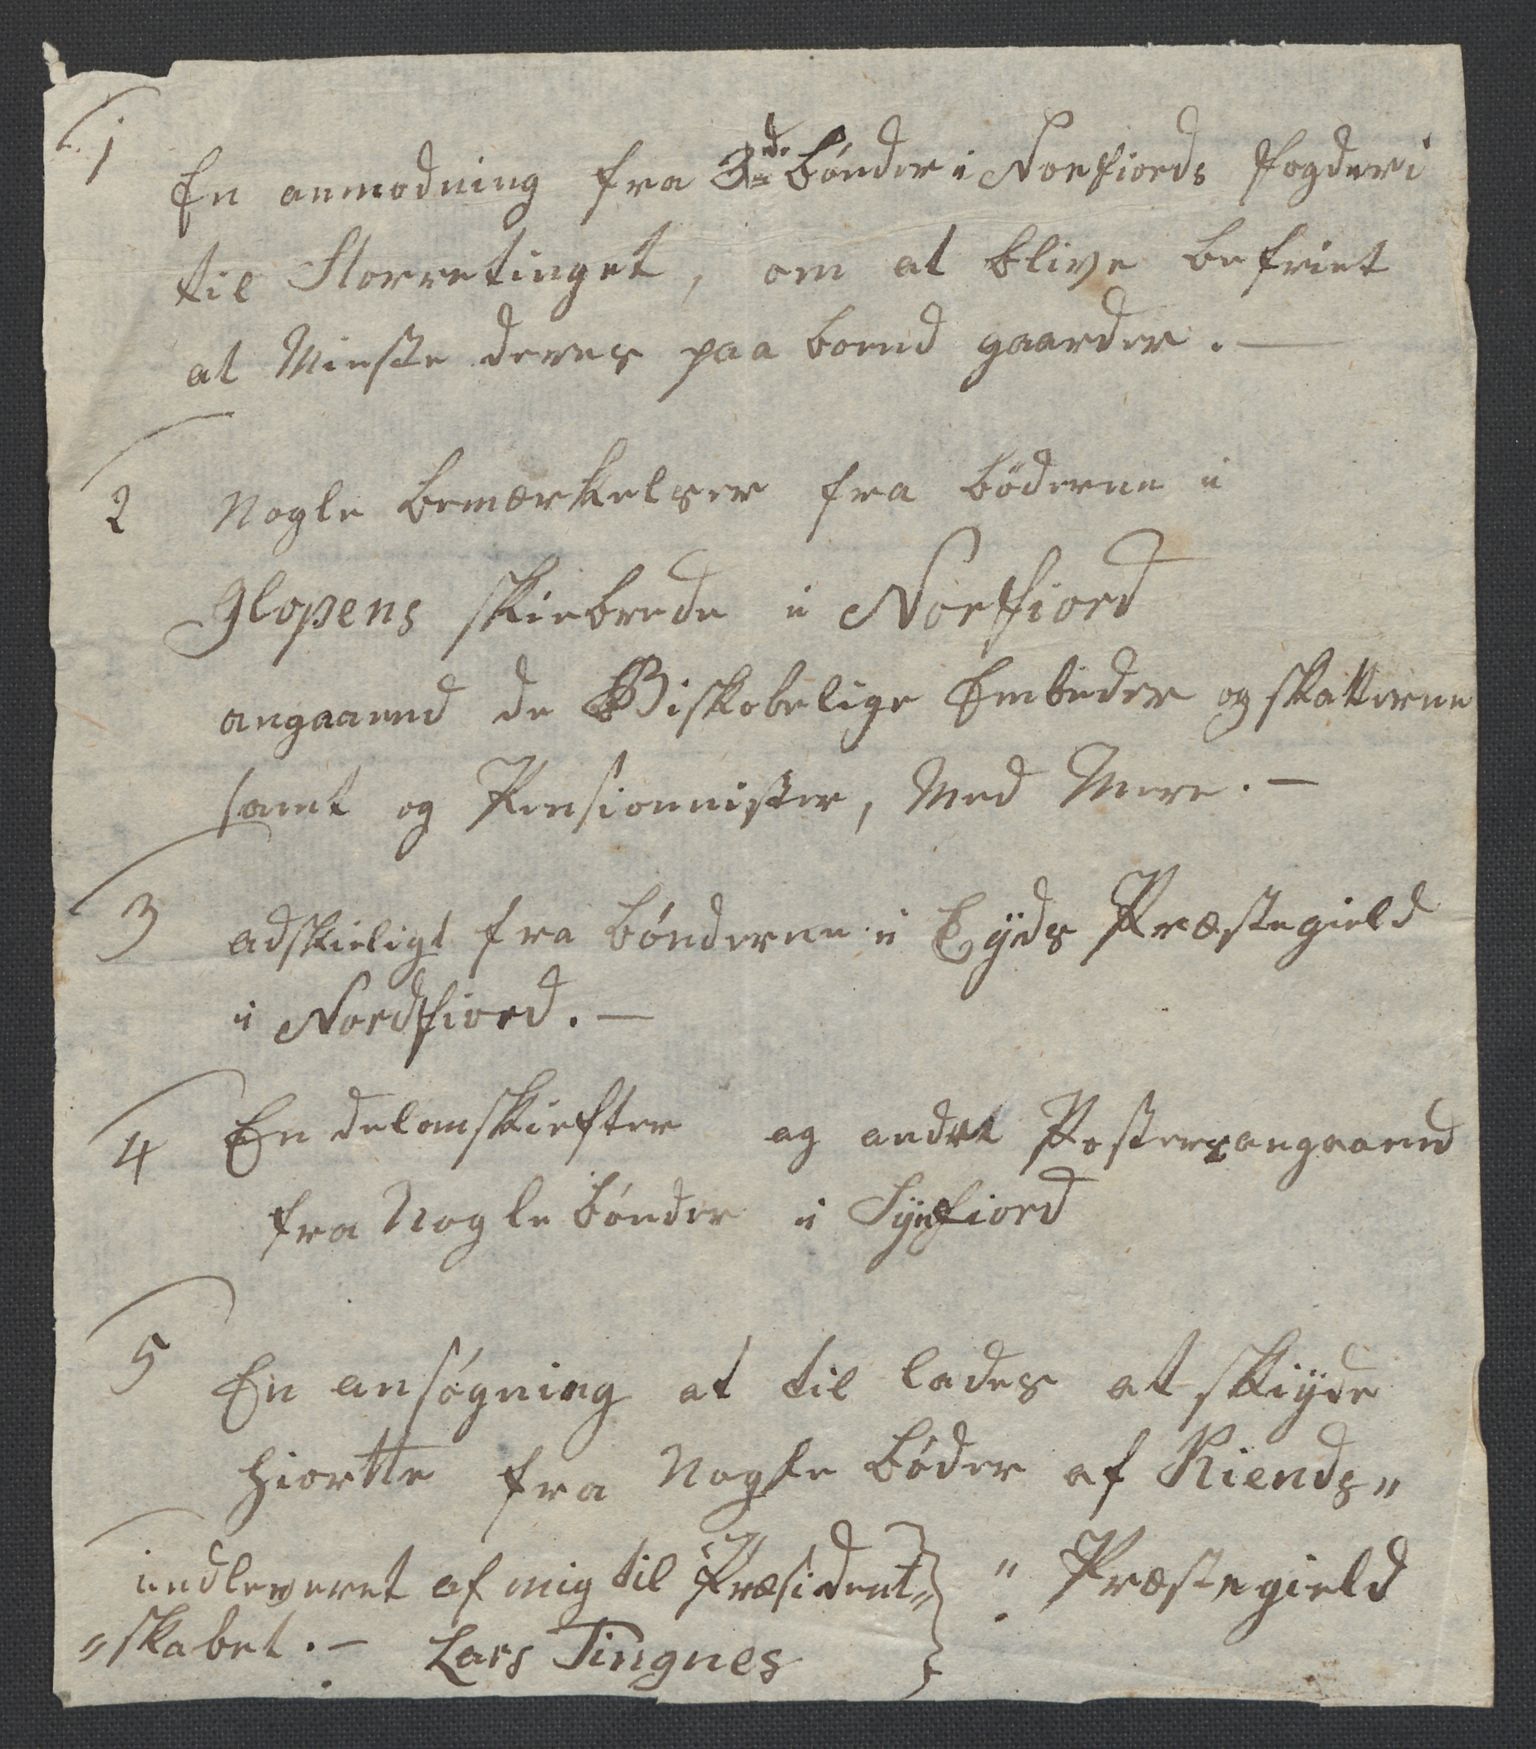 1
En anmodning fra 3de bønder i Norfiords fogderi
til Storretinget, om at blive befriet
at Miste deres paa boend gaarder. —
2 Nogle bemærkelser fra bøderne i
Glopens skiebrede i Norfiord
angaaend de Biskobelige Embeder og skatterne
samt og Pensionnister, Med Mere. —
3 adskieligt fra bønderne i Eyds Præstegield
i Nordfiord. —
4 En delomskiefter og andet Posters angaaend
fra Nogle bønder i Synfiord
5 En ansøgning at til lades at skiyde
hiortte fra Nogle bøder af Kiends„
„ Præstegield
indleveret af mig til Præsident„
„skabet. — Lars Tingnes